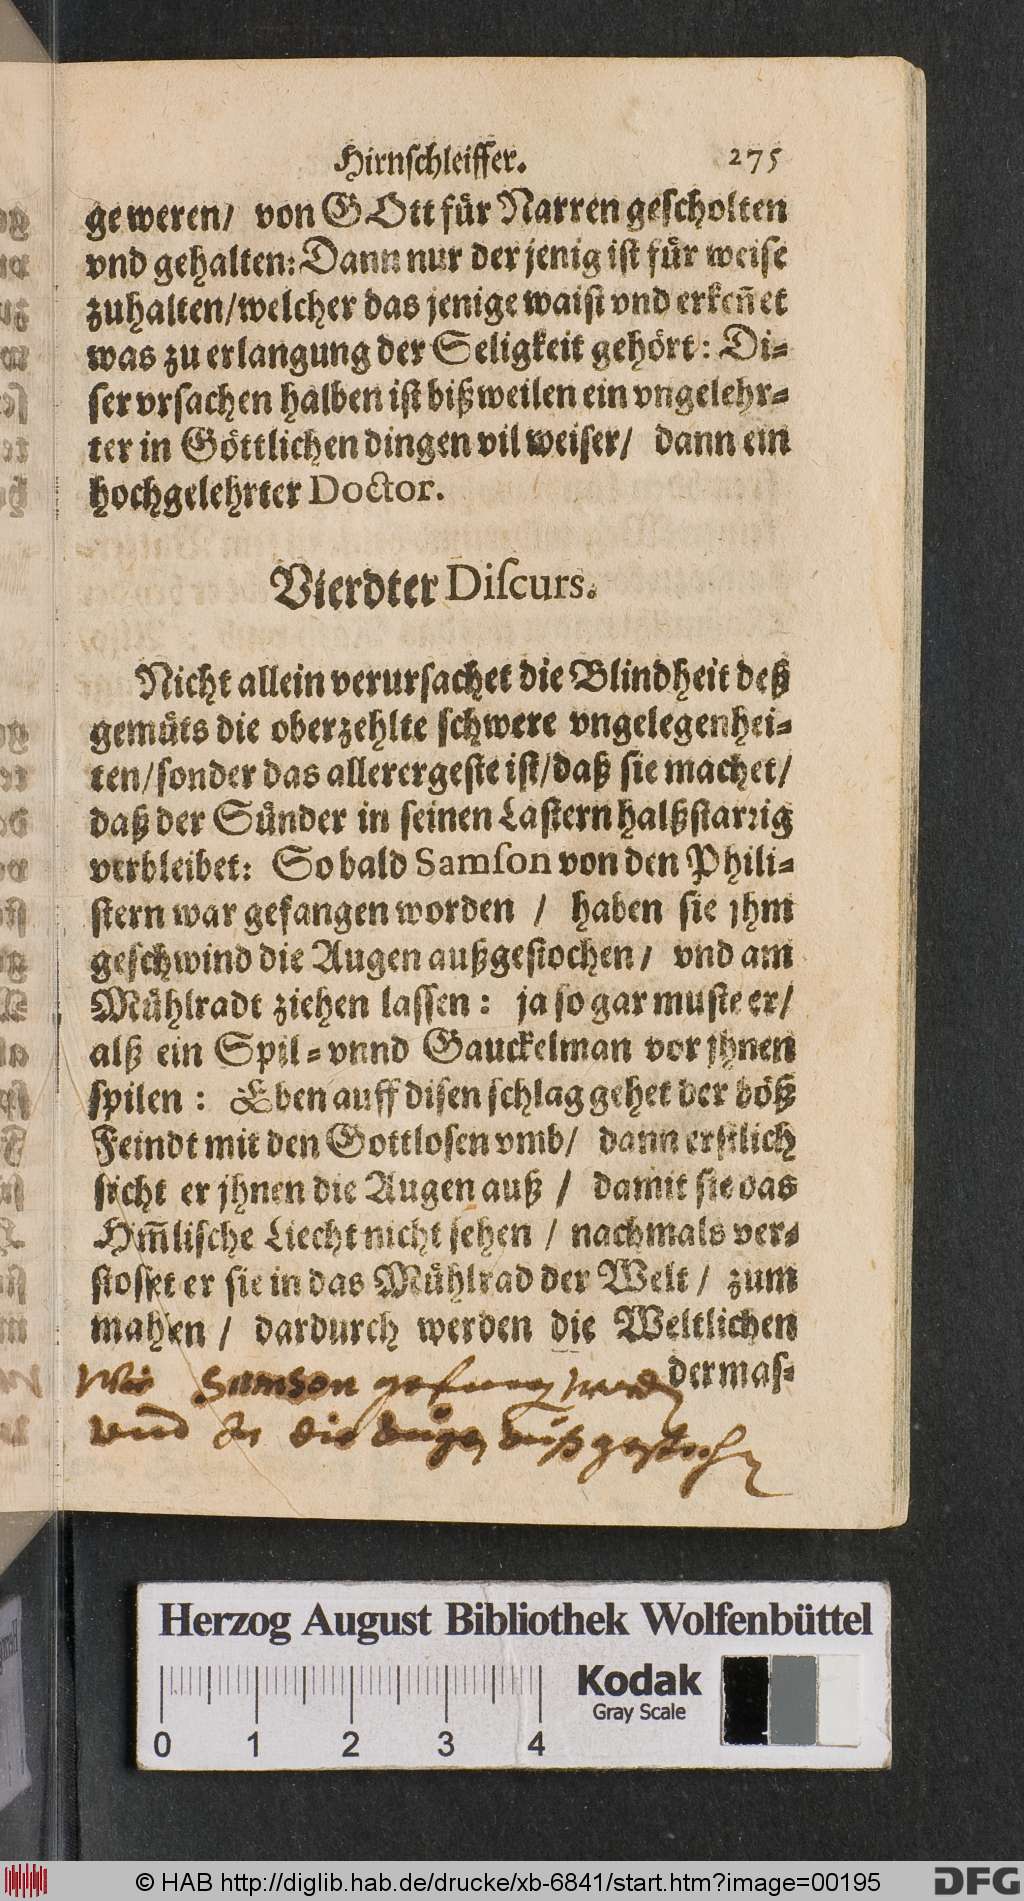 Hirnſchleiffer. 275
ge weren/ von GOtt fuͤr Narren geſcholten
vnd gehalten: Dann nur der jenig iſt fuͤr weiſe
zuhalten/welcher das jenige waiſt vnd erkeñet
was zu erlangung der Seligkeit gehoͤrt: Di-
ſer vrſachen halben iſt bißweilen ein vngelehr-
ter in Goͤttlichen dingen vil weiſer/ dann ein
hochgelehrter Doctor.
Vierdter Diſcurs.
Nicht allein verurſachet die Blindheit deß
gemuͤts die oberzehlte ſchwere vngelegenhei-
ten/ſonder das allerergeſte iſt/daß ſie machet/
daß der Suͤnder in ſeinen Laſtern halßſtarꝛig
verbleibet: So bald Samſon von den Phili-
ſtern war gefangen worden / haben ſie jhm
geſchwind die Augen außgeſtochen/ vnd am
Muͤhlradt ziehen laſſen: ja ſo gar muſte er/
alß ein Spil-vnnd Gauckelman vor jhnen
ſpilen: Eben auff diſen ſchlag gehet der boͤß
Feindt mit den Gottloſen vmb/ dann erſtlich
ſticht er jhnen die Augen auß / damit ſie das
Him̃liſche Liecht nicht ſehen / nachmals ver-
ſtoſſet er ſie in das Muͤhlrad der Welt / zum
mahlen / dardurch werden die Weltlichen
dermaſ-
Wie Samson gefangen
vnd die augen außgestochen
Herzog August Bibliothek Wolfenbüttel
Kodak
Gray Scale
0 1 2 3 4
© HAB http://diglib.hab.de/drucke/xb-6841/start.htm?image=00195
DFG